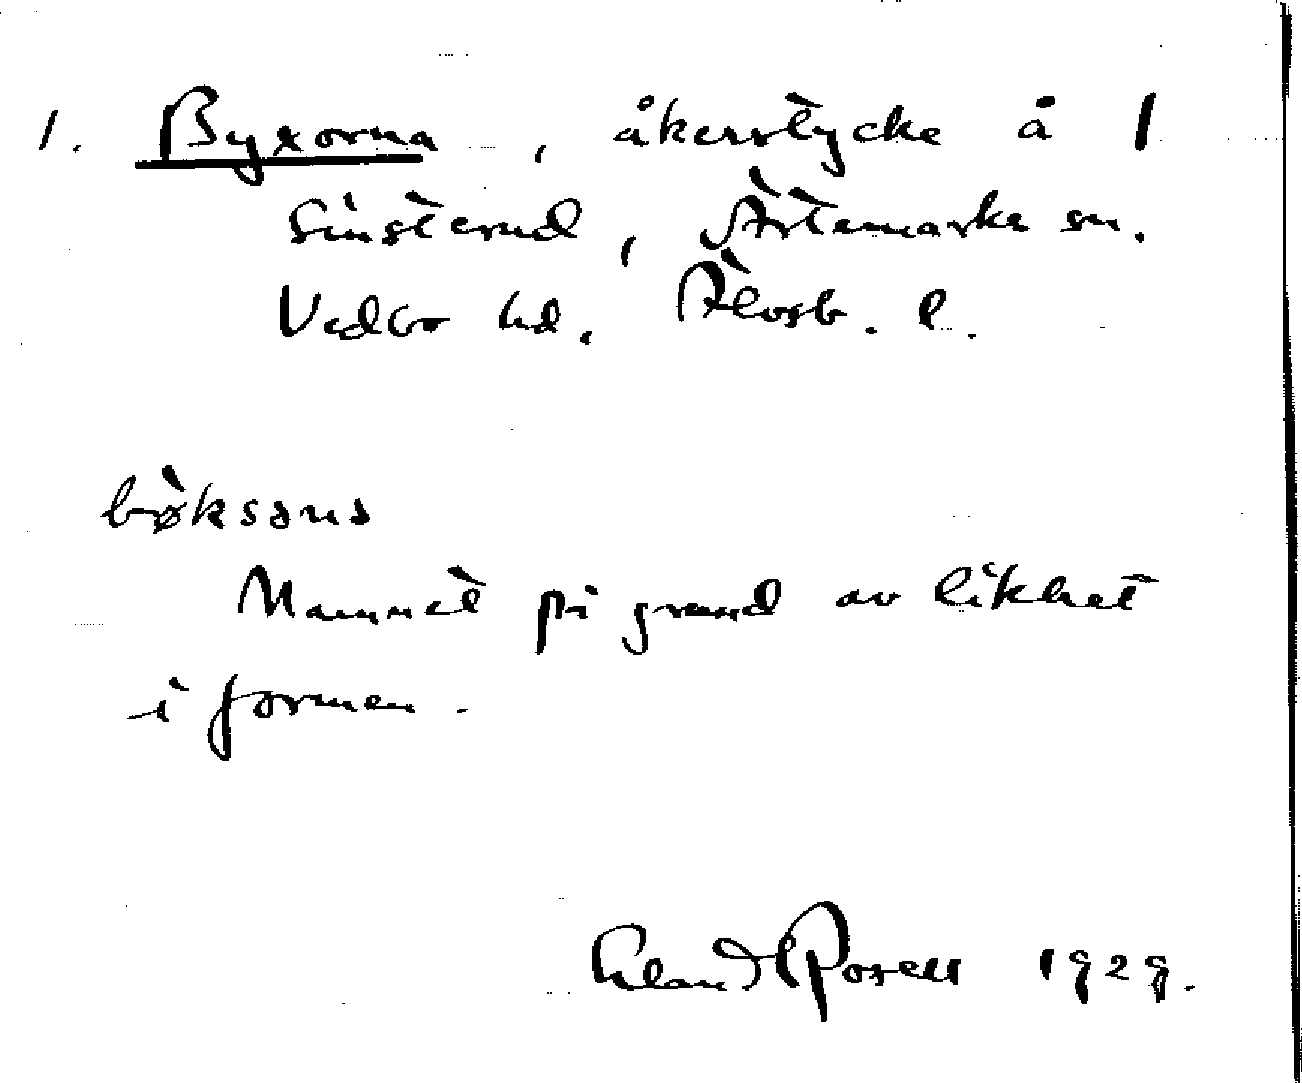 1. Byxorna, åkerstycke å 1
Sinsterud, Ärtemarks sn.
Vedbo hd. Älvsb. l.
bø̀ksəɳə
Namnet på grund av likhet
i formen.
Erland Rosell 1929.